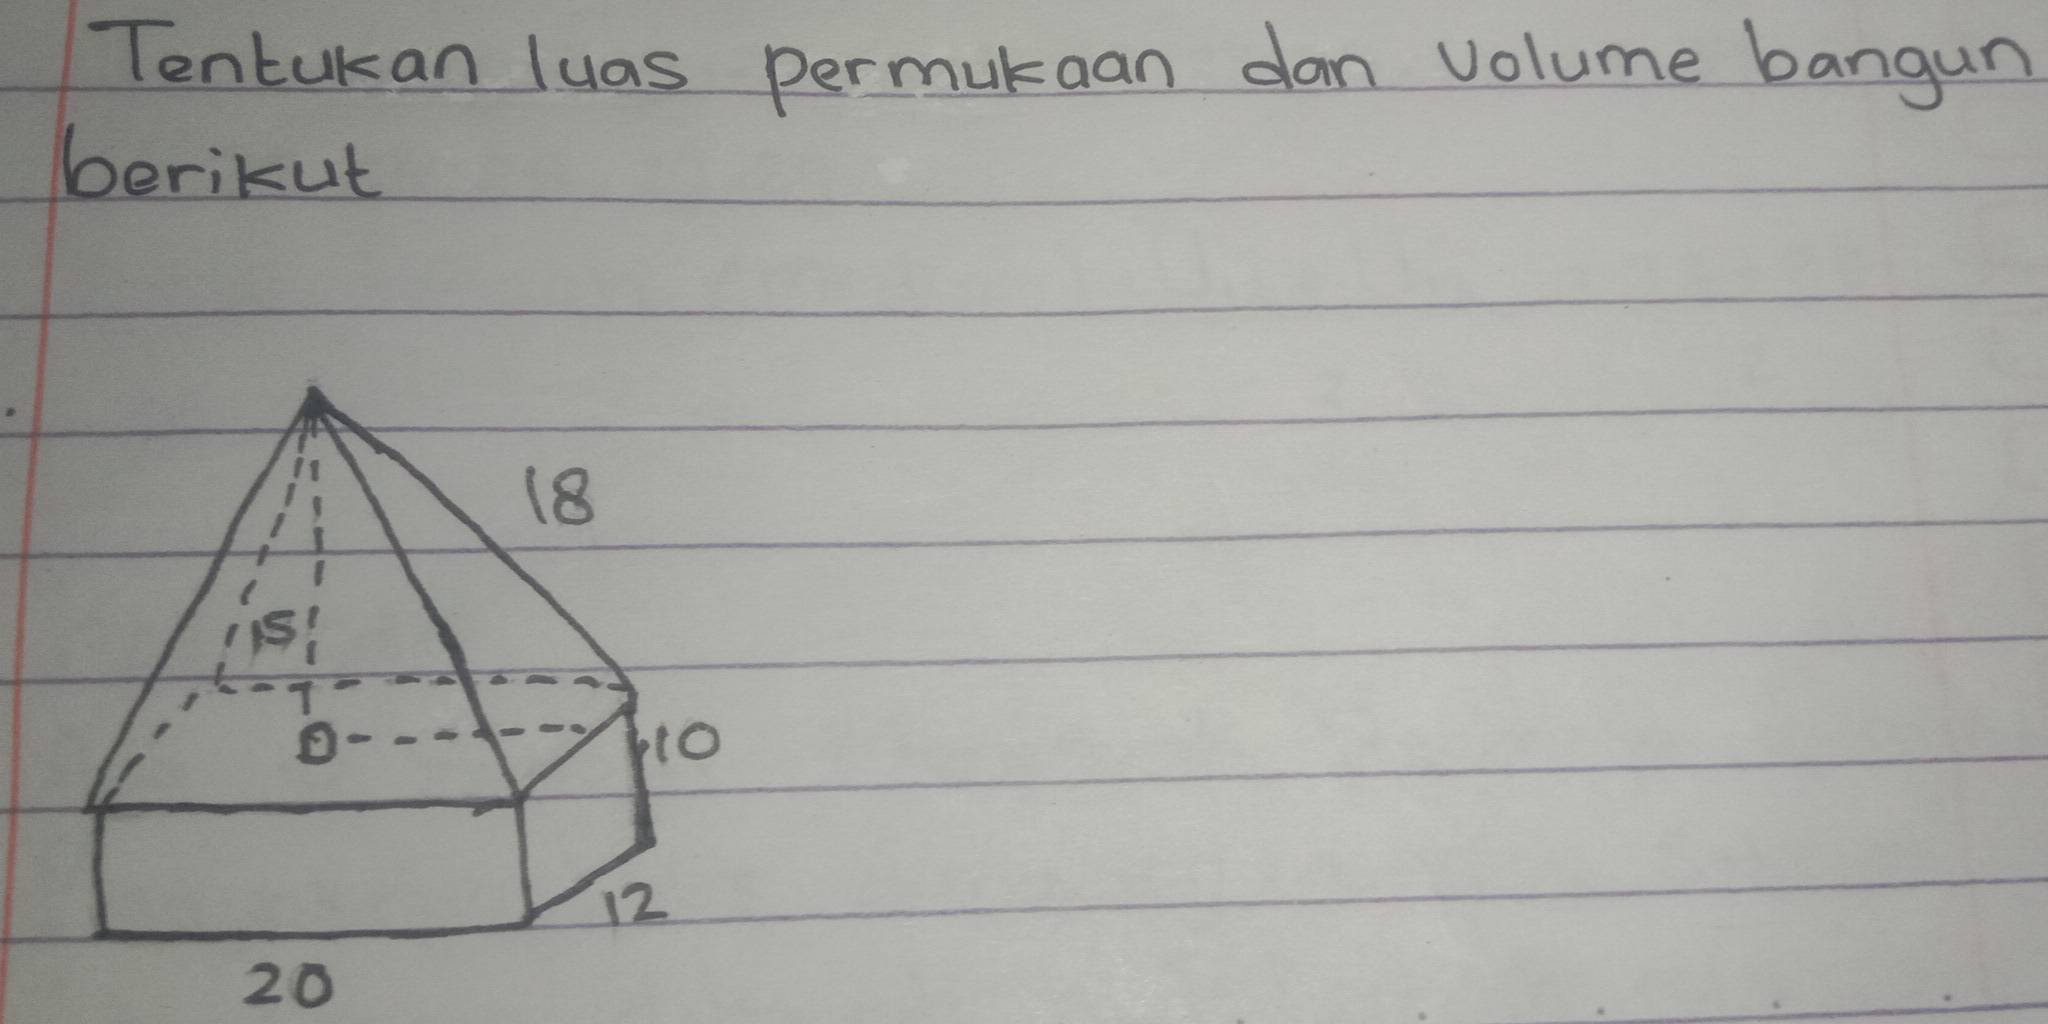 Tentukan luas permukaan dan volume bangun
berikut
18
15
O
10
12
20